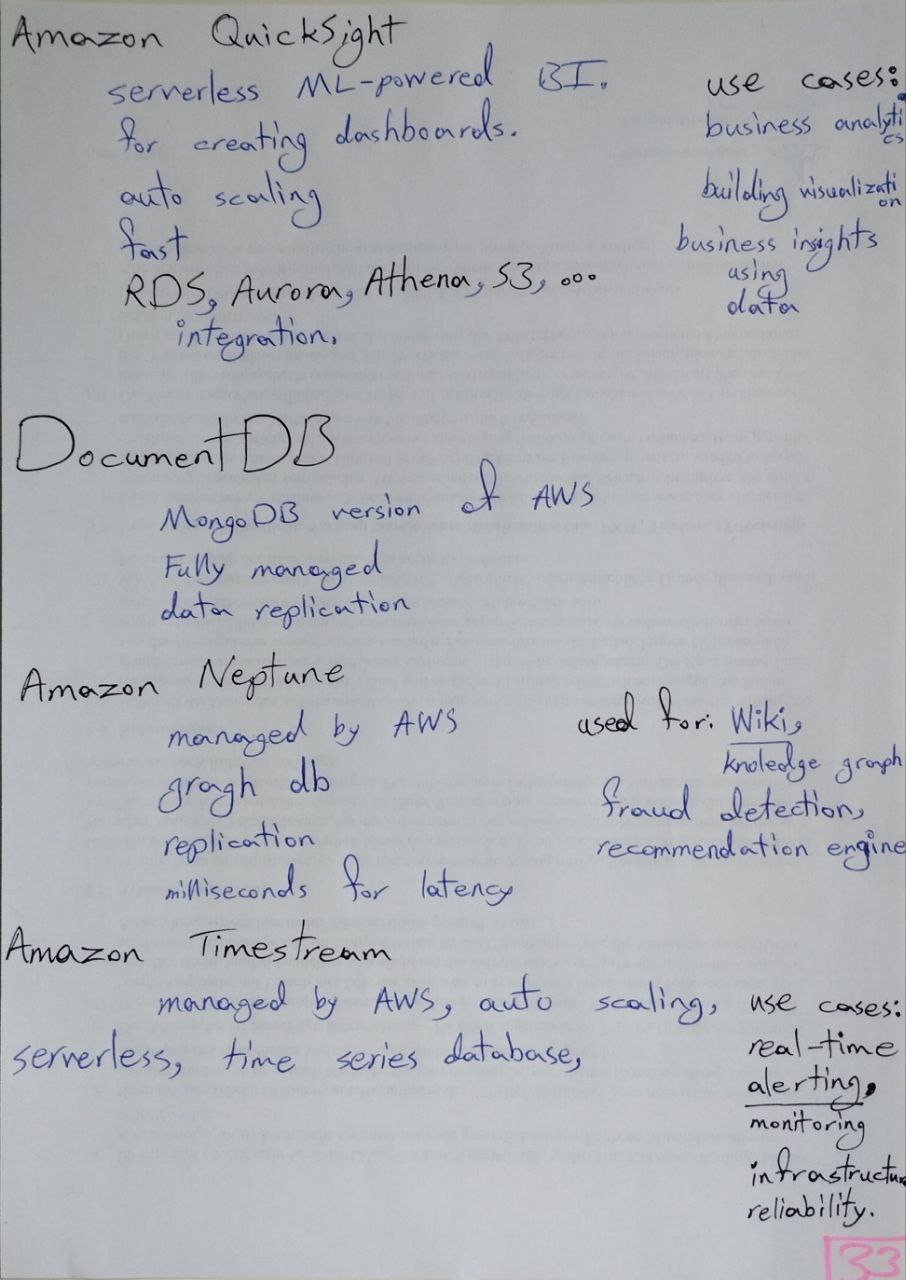 Amazon QuickSight
serverless ML-powered BI.
for creating dashboards.
auto scaling
fast
RDS, Aurora, Athena, S3, ...
integration,
use cases:
business analyti
cs
building visualizati
on
business insights
using
data
DocumentDB
MongoDB version of AWS
Fully managed
data replication
Amazon Neptune
managed by AWS
gragh db
replication
milliseconds for latency
used for: Wiki,
knoledge graph
fraud detection,
recommendation engine
Amazon Timestream
managed by AWS, auto scaling,
serverless, time series database,
use cases:
real-time
alerting,
monitoring
infrastructure
reliability.
33